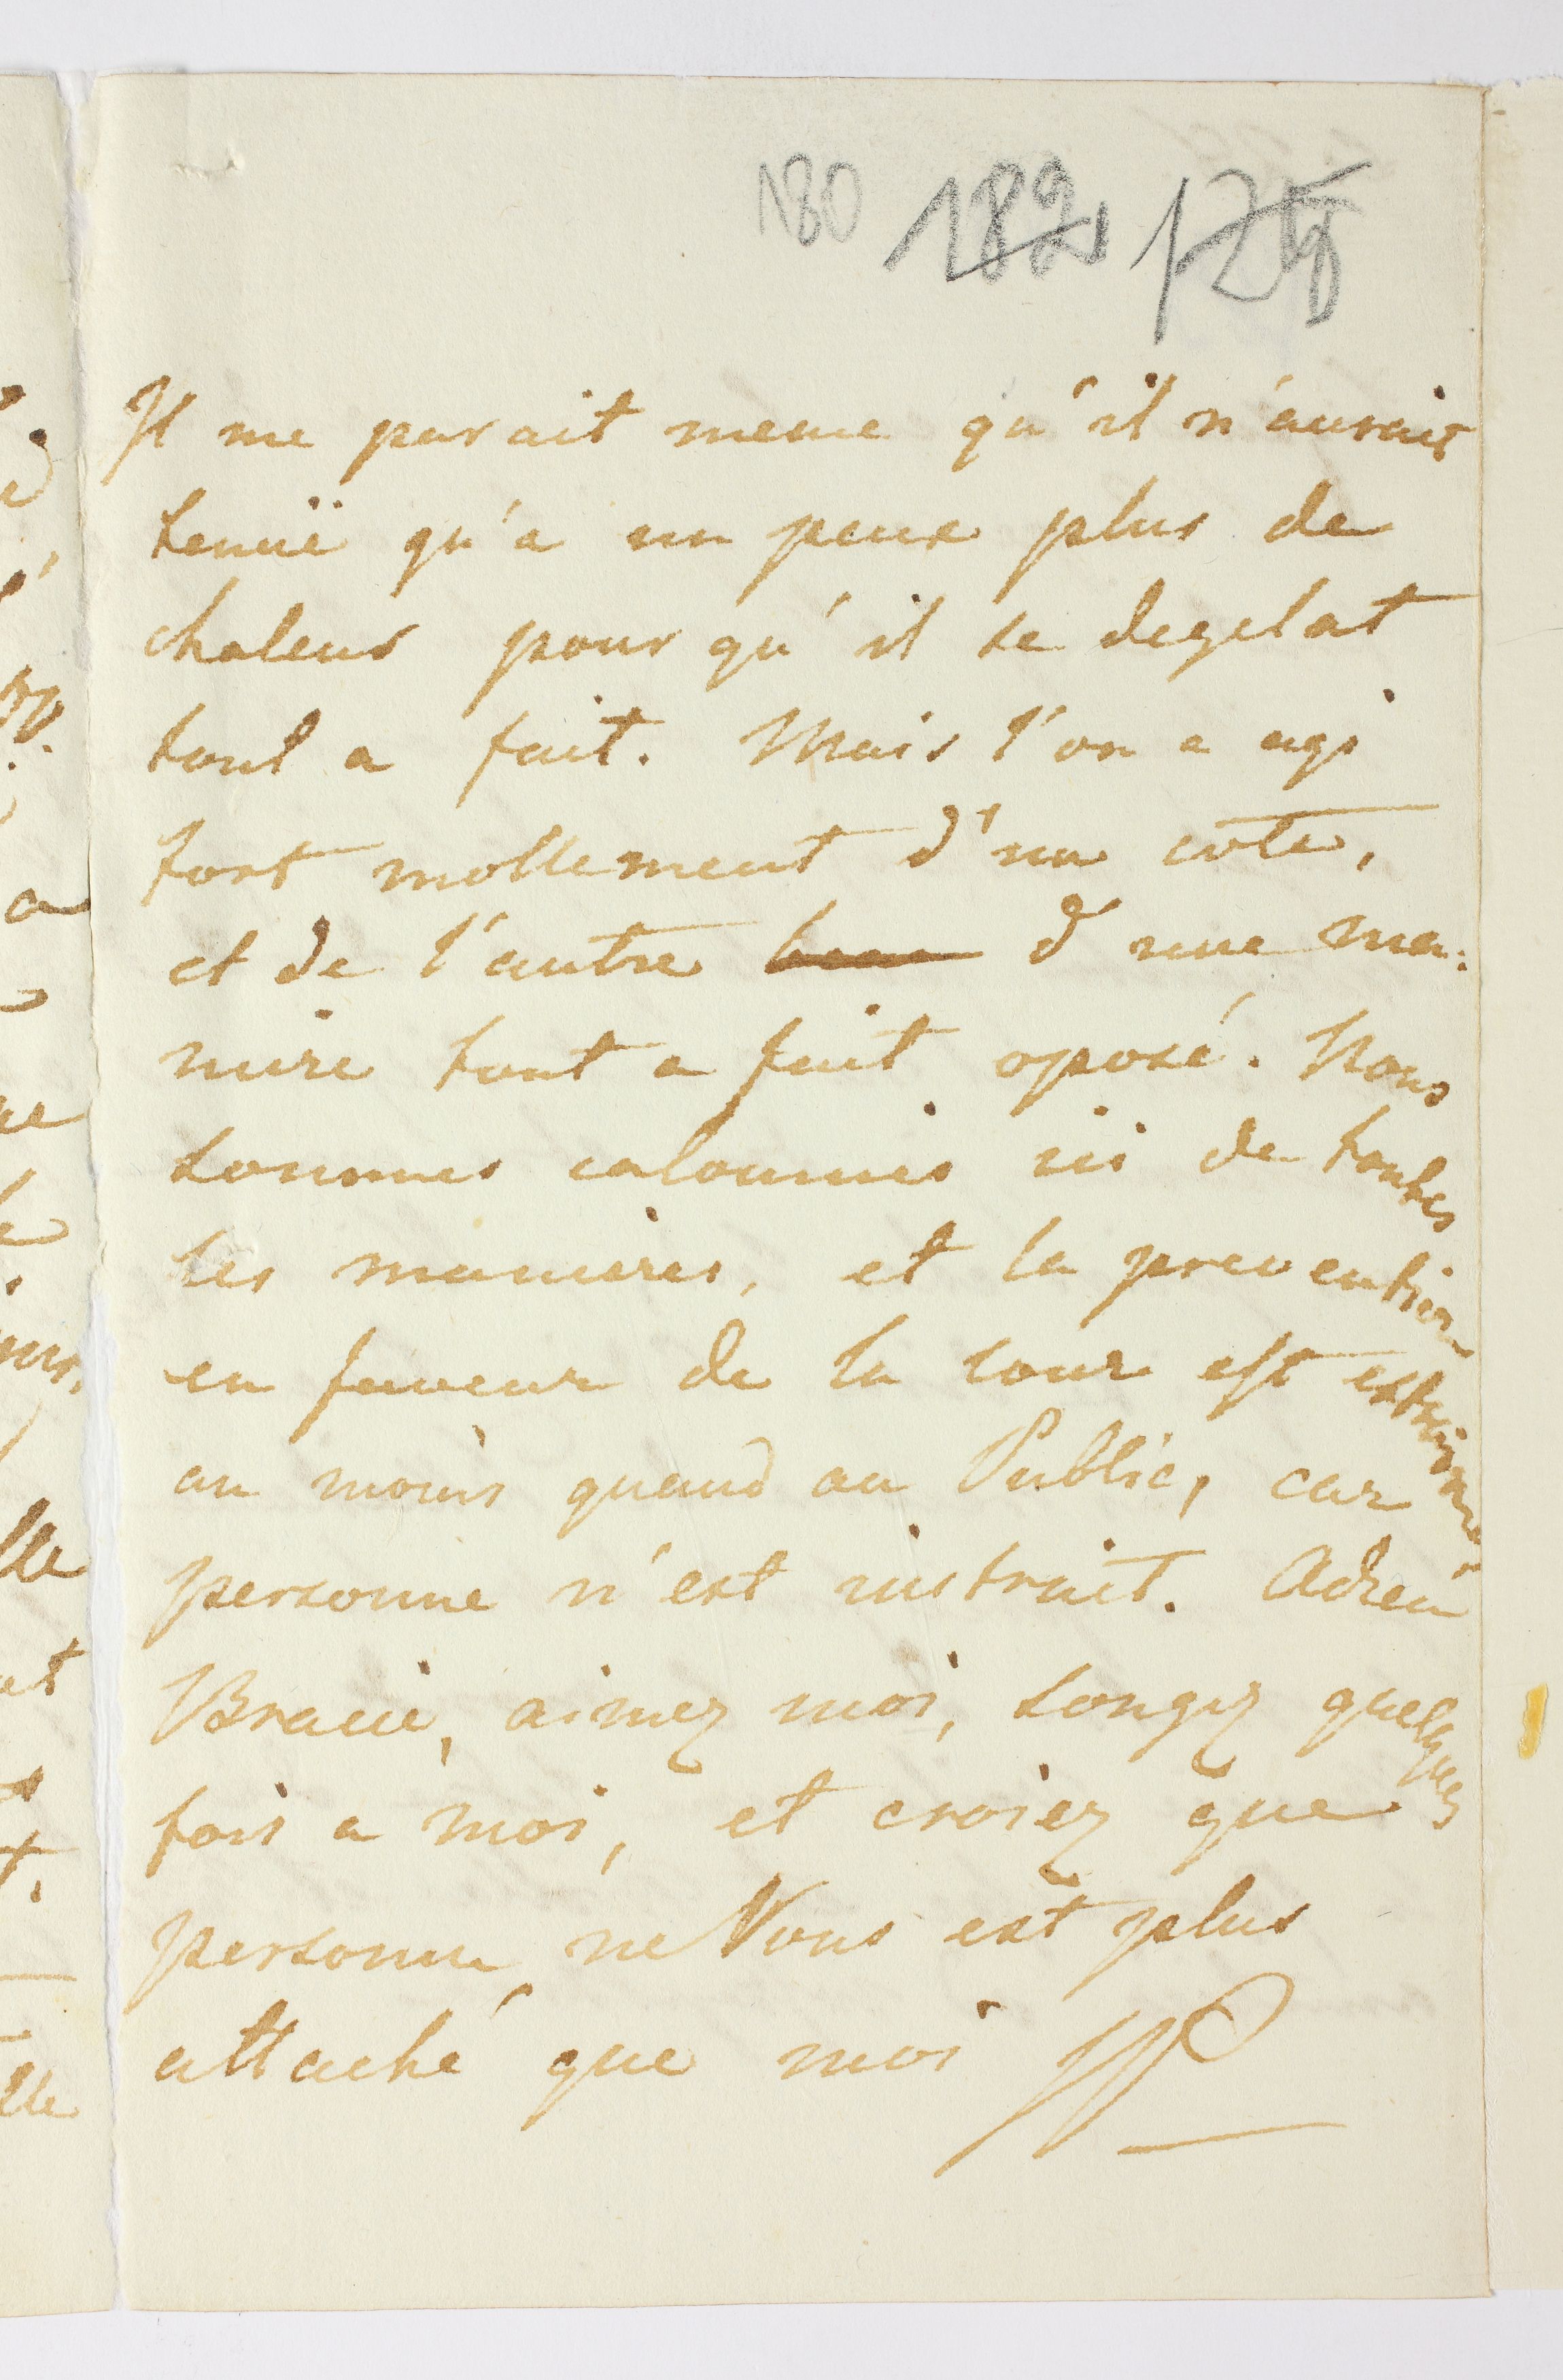 180 182 178
Il me parait meme qu'il n'aurait
tenuë qu'a un peux plus de
chaleur pour qu'il se degelat
tout a fait. Mais l'on a agi
fort mollement d'un côte,
et de l'autre d'une ma:
niere tout a fait oposé. Nous
sommes calomnies ici de toutes
les manieres, et la prevention
en faveur de la cour est extreme,
au moins quand au Public, car
personne n'est instruit. Adieu
Bracie, aimez moi, songez quelques
fois a moi, et croiez que
personne ne Vous est plus
attaché que moi